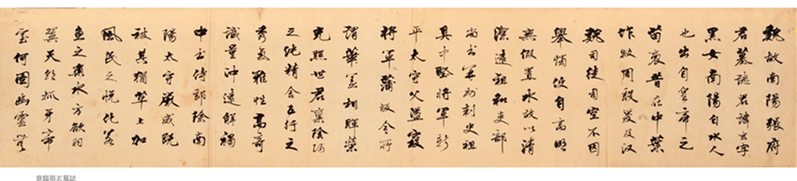 魏故南陽張府
君墓誌君諱玄字
黑女南陽白水人
也出自皇帝之
苗裔昔在中葉
作牧周殷爰及漢
魏司徒司空不因
舉燭便自高明
無假置水故以清
潔遠祖和吏部
尚書并州刺史祖
具中堅將軍新
平太守父盪寇
將軍蒲坂令所
謂華蓋相暉榮
光照世君稟陰陽
之純精含五行之
秀氣雅性高奇
識量沖遠解褐
中書侍郎除南
陽太守嚴威既
被其猶草上加
風民之悅化若
魚之樂水方欲羽
翼天朝抓牙帝
室何圖幽靈無